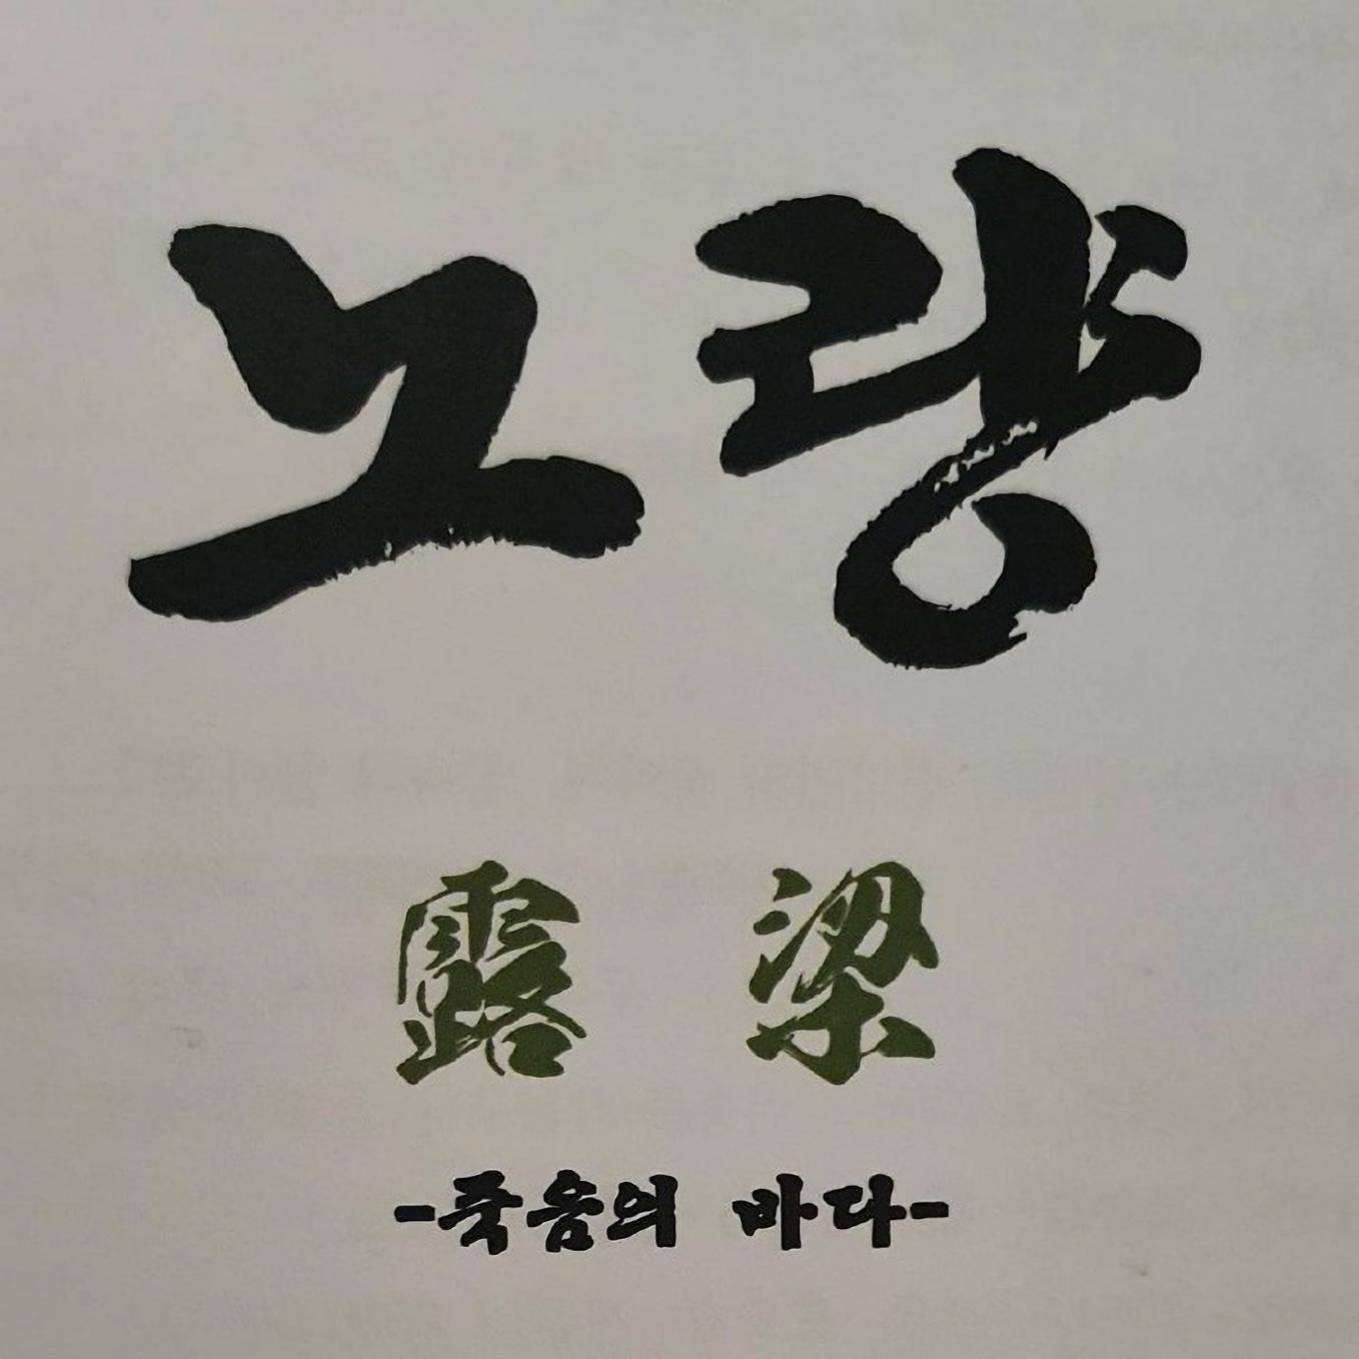 노량
露梁
-죽음의 바다-